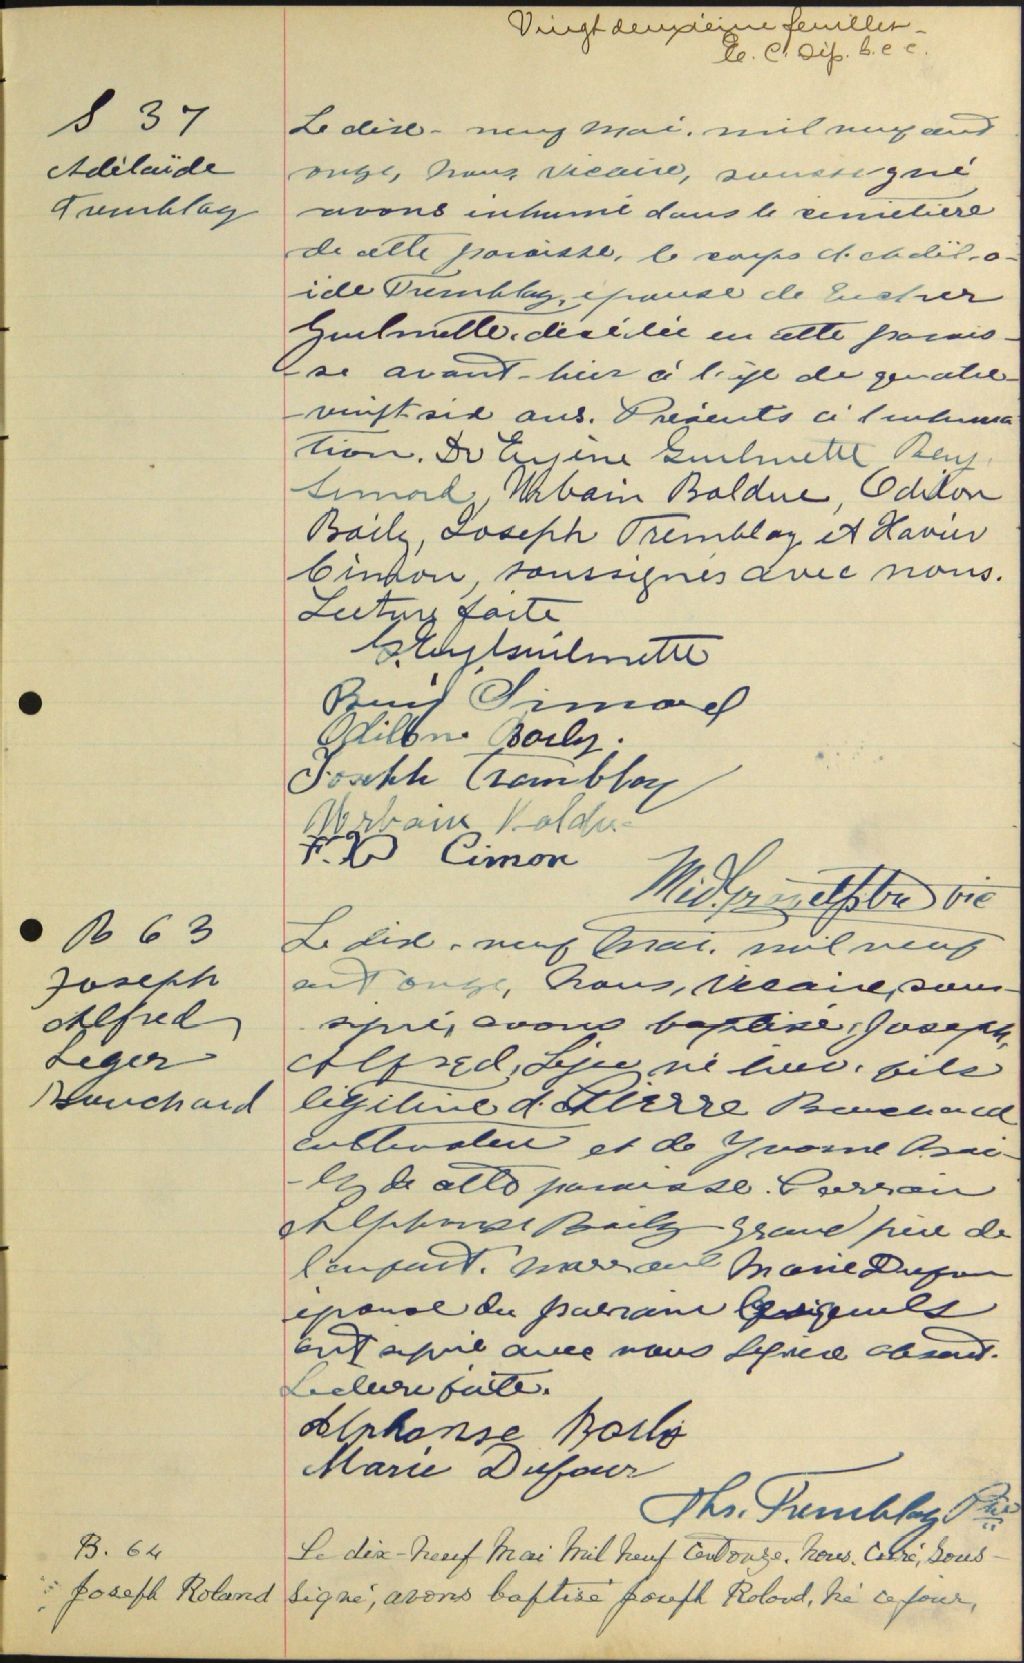 Vingt deuxième feuillet
E. C. Dép. b. c c.
S 37
Adélaïde
Tremblay
Le dix-neuf mai, mil neuf cent
onze, nous, vicaire, soussigné
avons inhumé dans le cimetière
de cette paroisse, le corps d'Adéla-
ide Tremblay, épouse de Eucher
Guilmette, décédée en cette parois-
-se avant-hier à l'âge de quatre-
vingt six ans. Présents à l'inhuma
tion. Dr Eugène Guilmette Benj.
Simard, Urbain Bolduc, Odilon
Baily, Joseph Tremblay et Xavier
Cimon, soussignés avec nous.
Lecture faite
Eug Guilmette
Benj Simard
Odilon Baily.
Joseph Tremblay
Urbain Bolduc
F. X Cimon
ptre vic
B 63
Joseph
Alfred
Leger
Bouchard
Le dix-neuf mai, mil neuf
cent onze, nous, vicaire, sous-
signé, avons baptisé, Joseph,
Alfred, Léger né hier, fils
légitime de Pierre Bouchard
cultivateur et de Yvonne Bai-
-ly de cette paroisse. Parrain
Alphonse Baily grand père de
l'enfant. marraine Marie Dufour
épouse du parrain lesquels
ont signé avec nous le père absent.
Lecture faite.
Alphonse Baily
Marie Dufour
Ths. Tremblay Ptre
B. 64
Joseph Roland
Le dix-neuf Mai Mil Neuf Cent onze, nous, Curé, Sous-
signé, avons baptisé Joseph Roland, né ce jour,